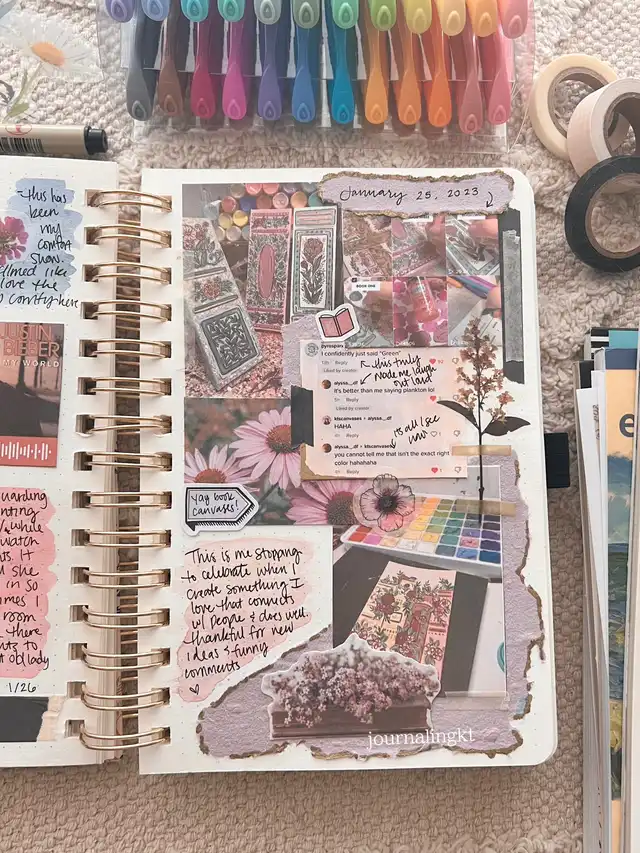 this has
been
my
comfort
show.
filmed like
love the
comfy here
JUSTIN
BIEBER
MY WORLD
guarding
while
watch
it
she
in so
times I
room
there
old lady
1/26
January 25, 2023
BOOK ONE
I confidently just said "Green"
Reply
Liked by creator
this truly
made me laugh
out loud
alyssa._.df
it's better than me saying plankton lol
Reply
Liked by creator
ktscanvases • alyssa._.df
HAHA
Reply
it's all I see
now
alyssa._.df • ktscanvases
you cannot tell me that isn't the exact right
color hahahaha
Reply
yay book
canvases!
This is me stopping
to celebrate when I
create something I
love that connects
w/ people & does well.
thankful for new
ideas & funny
comments
journalingkt
e